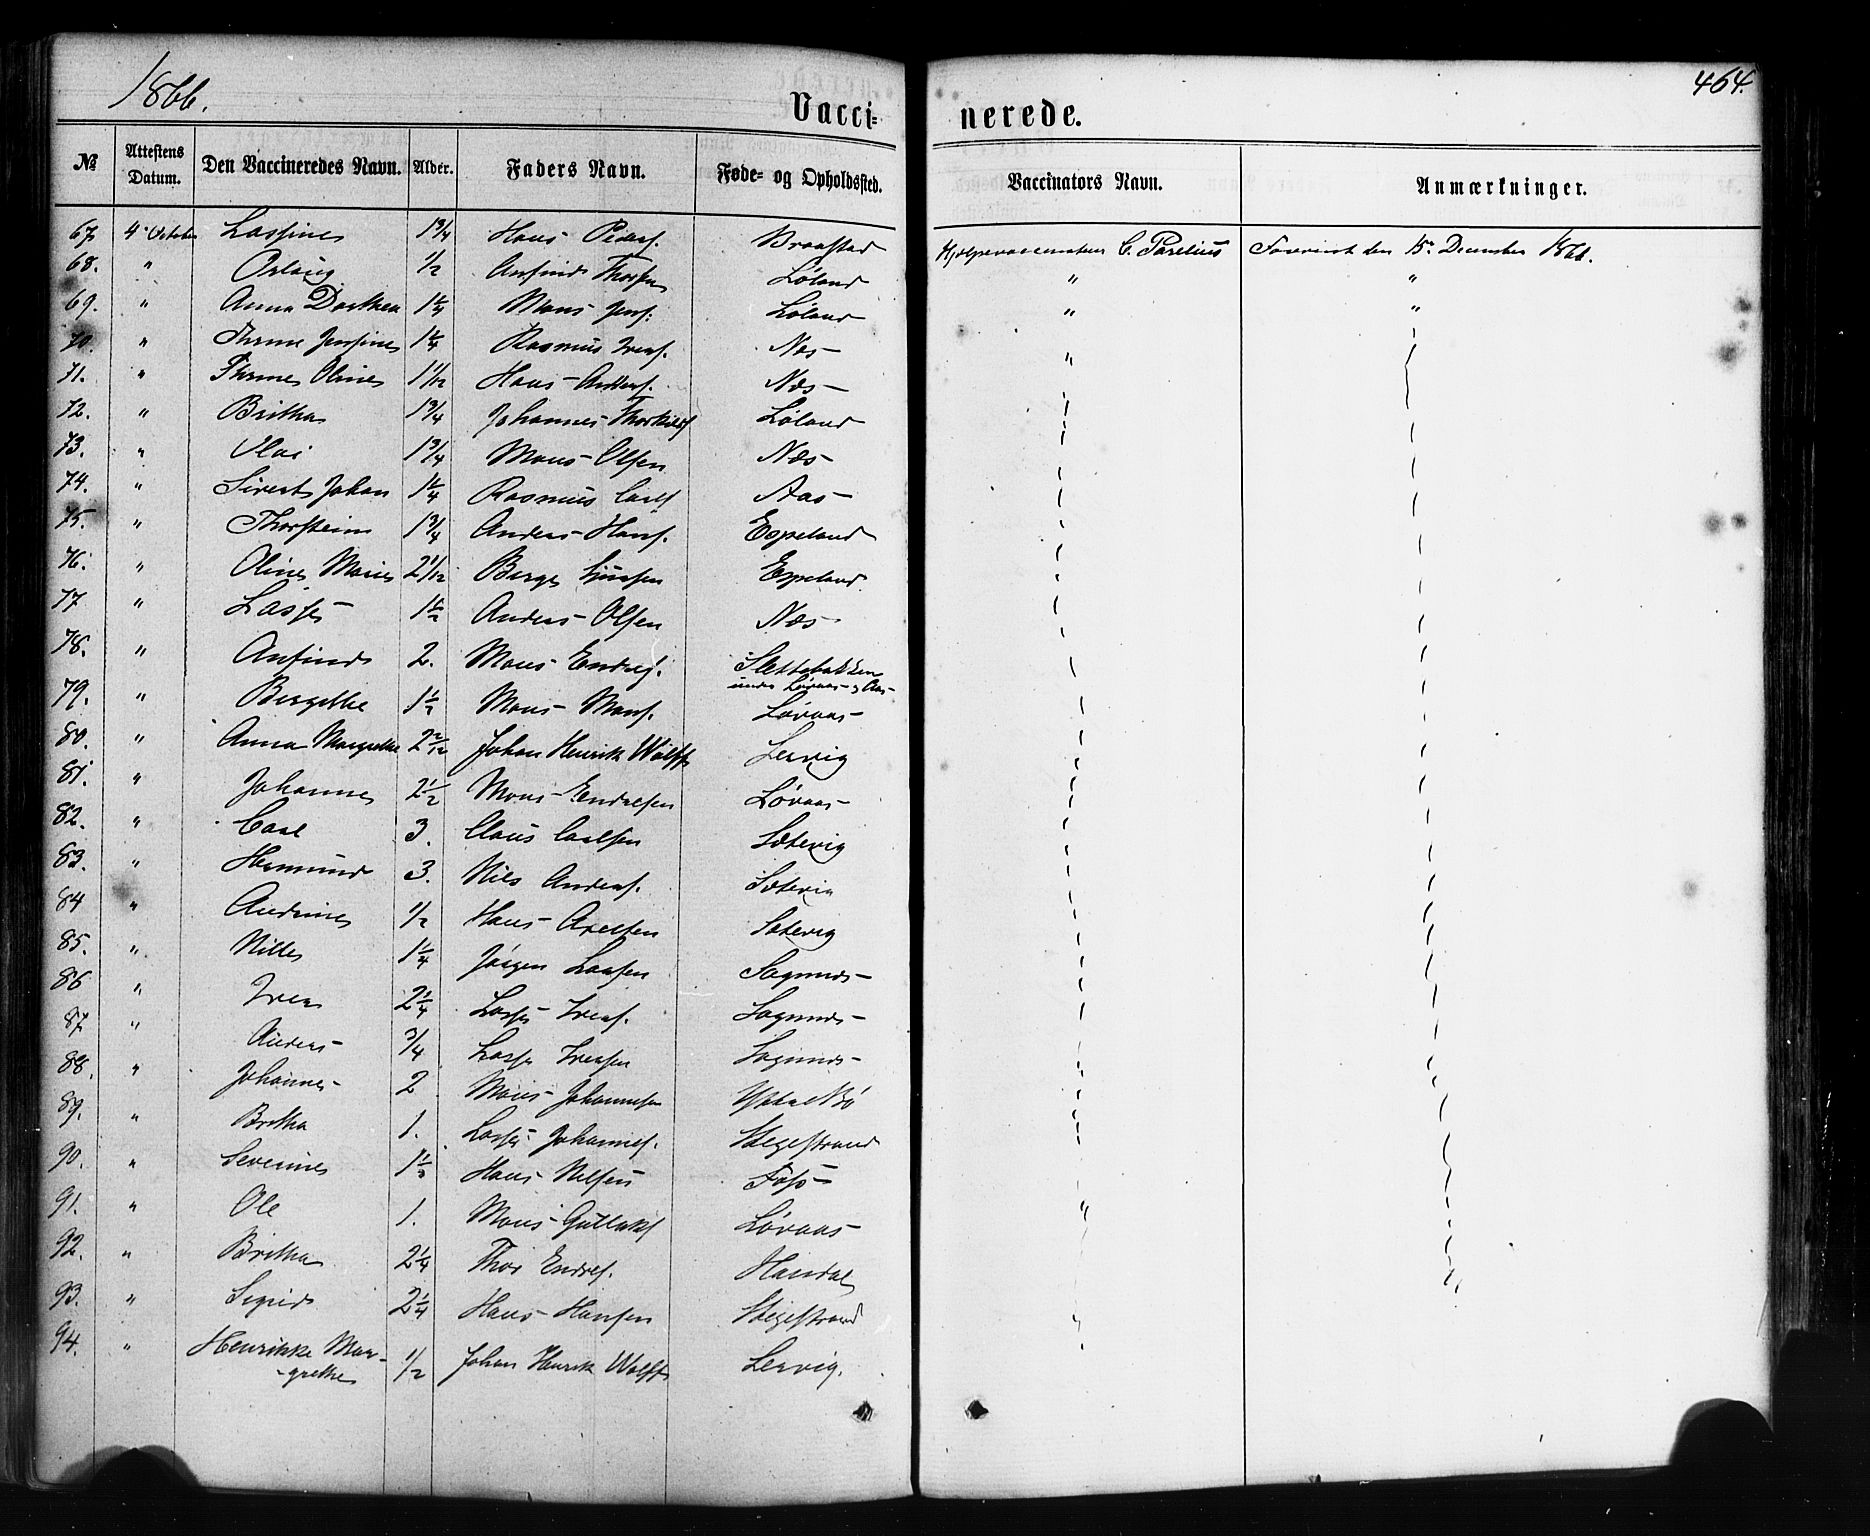 1866.
464.
Vaccinerede.
No Attestens Datum. Den Vaccineredes Navn. Alder. Faders Navn. Føde- og Opholdssted. Vaccinators Navn. Anmærkninger.
67 4de October Lassine 1 3/4 Hans Peders. Braastad Hjælpevaccinateur C. Parelius Foreviist den 15de December
68. " 1/2 Anfind Thorsen Løland " "
69. " Anna Dorthea 1 1/4 Mons Jens. Løland " "
70. " Jensine 1 1/4 Rasmus Ivers. Næs "
71. " Oline 1 1/12 Hans Anders. Næs
72. " Britha 1 3/4 Johannes Thorkilds Løland
73. " Olai 1 3/4 Mons Olsen Næs
74. " Sivert Johan 1 1/4 Rasmus Carls Aas
75. " Thorstein 1 3/4 Anders Hans. Espeland
76. " Oline Marie 2 1/12 Berge Espeland
77 " Lasse 1 1/2 Anders Olsen Næs
78. " Anfind 2. Mons Endres. Slettebakken
under Løvaas Aas
79. " Bergithe 1 1/2 Mons Mons. Løvaas
80. " Anna Margrethe 2 2/12 Johan Henrik Wolff Lervig
81. " Johannes 2 1/2 Mons Endresen Løvaas
82. " Carl 3. Claus Carlsen Sætevig
83. " Hermund 3. Nils Anders. Sætevig
84 " Andrine 1/2 Hans Axelsen Sætevig
85. " Nille 1 1/4 Jørgen Larsen Sognnes
86 " Iver 2 1/4 Lasse Ivers. Sognnes
87. " Anders 3/4 Lasse Iversen Sognnes
88. " Johannes 2 Mons Johannesen Ytre Bø
89. " Britha 1. Lasse Johannes. Stegestrand
90. " Severine 1 1/2 Hans Nilsen Fosø
91. " Ole 1. Mons Guttaks Løvaas "
92. " Britha 2 1/4 Thor Endres. Handal
93. " Sigrid 2 1/4 Hans Hansen Stegestrand
94. " Henrikke Mar-
-grethe 1/2 Johan Henrik Wolff Lervig.